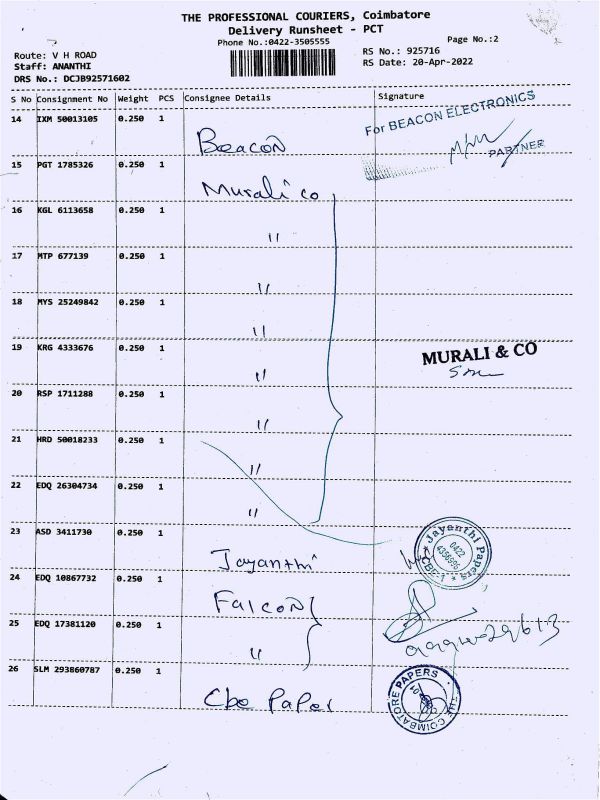 THE PROFESSIONAL COURIERS, Coimbatore
Delivery Runsheet - PCT
Phone No.:0422-3505555
Page No.:2
Route: V H ROAD
RS No.: 925716
Staff: ANANTHI
RS Date: 20-Apr-2022
DRS No.: DCJB92571602
S No Consignment No Weight PCS Consignee Details Signature
14 IXM 50013105 0.250 1 Beacon
For BEACON ELECTRONICS
PARTNER
15 PGT 1785326 0.250 1 Murali co
16 KGL 6113658 0.250 1 "
17 MTP 677139 0.250 1 "
18 MYS 25249842 0.250 1 "
19 KRG 4333676 0.250 1 "
MURALI & CO
20 RSP 1711288 0.250 1 "
21 HRD 50018233 0.250 1 "
22 EDQ 26304734 0.250 1 "
23 ASD 3411730 0.250 1 Jayanthi
* Jayanthi Papers * CBE-1
0422
24 EDQ 10867732 0.250 1 Falcon
25 EDQ 17381120 0.250 1 "
26 SLM 293860787 0.250 1 Cbe Paper
THE COIMBATORE PAPERS